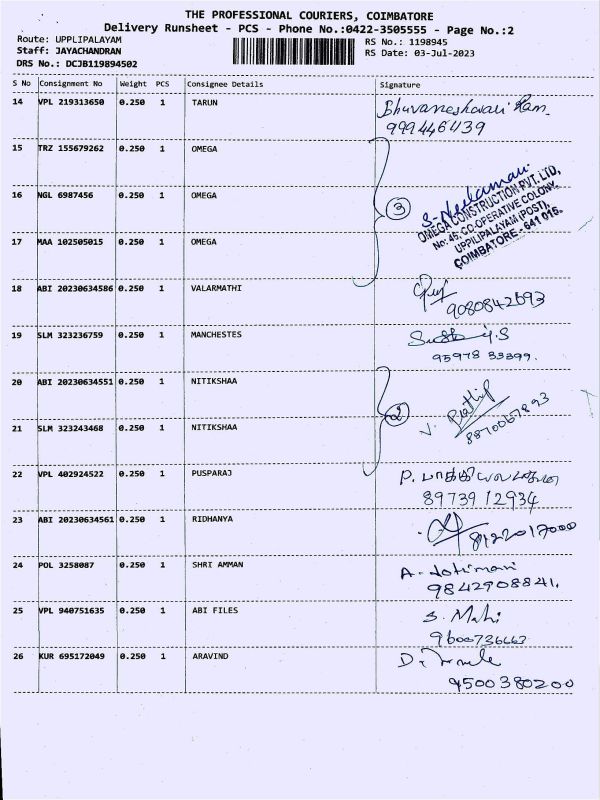 THE PROFESSIONAL COURIERS, COIMBATORE
Delivery Runsheet - PCS - Phone No.:0422-3505555 - Page No.:2
Route: UPPLIPALAYAM
RS No.: 1198945
Staff: JAYACHANDRAN
RS Date: 03-Jul-2023
DRS No.: DCJB119894502
S No Consignment No Weight PCS Consignee Details Signature
14 VPL 219313650 0.250 1 TARUN Bhuvaneshwari Ram
15 TRZ 155679262 0.250 1 OMEGA
16 NGL 6987456 0.250 1 OMEGA 3
OMEGA CONSTRUCTION PVT. LTD,
No: 45, CO-OPERATIVE COLONY,
UPPILIPALAYAM (POST),
COIMBATORE - 641 015.
17 MAA 102505015 0.250 1 OMEGA
18 ABI 20230634586 0.250 1 VALARMATHI
9080842693
19 SLM 323236759 0.250 1 MANCHESTES
95978 33399.
20 ABI 20230634551 0.250 1 NITIKSHAA
2
8870067893
21 SLM 323243468 0.250 1 NITIKSHAA
22 VPL 402924522 0.250 1 PUSPARAJ
89739 12934
23 ABI 20230634561 0.250 1 RIDHANYA
8122017000
24 POL 3258087 0.250 1 SHRI AMMAN A. Jothimani
9842908841.
25 VPL 940751635 0.250 1 ABI FILES S. Mahi
9600736663
26 KUR 695172049 0.250 1 ARAVIND
9500380200